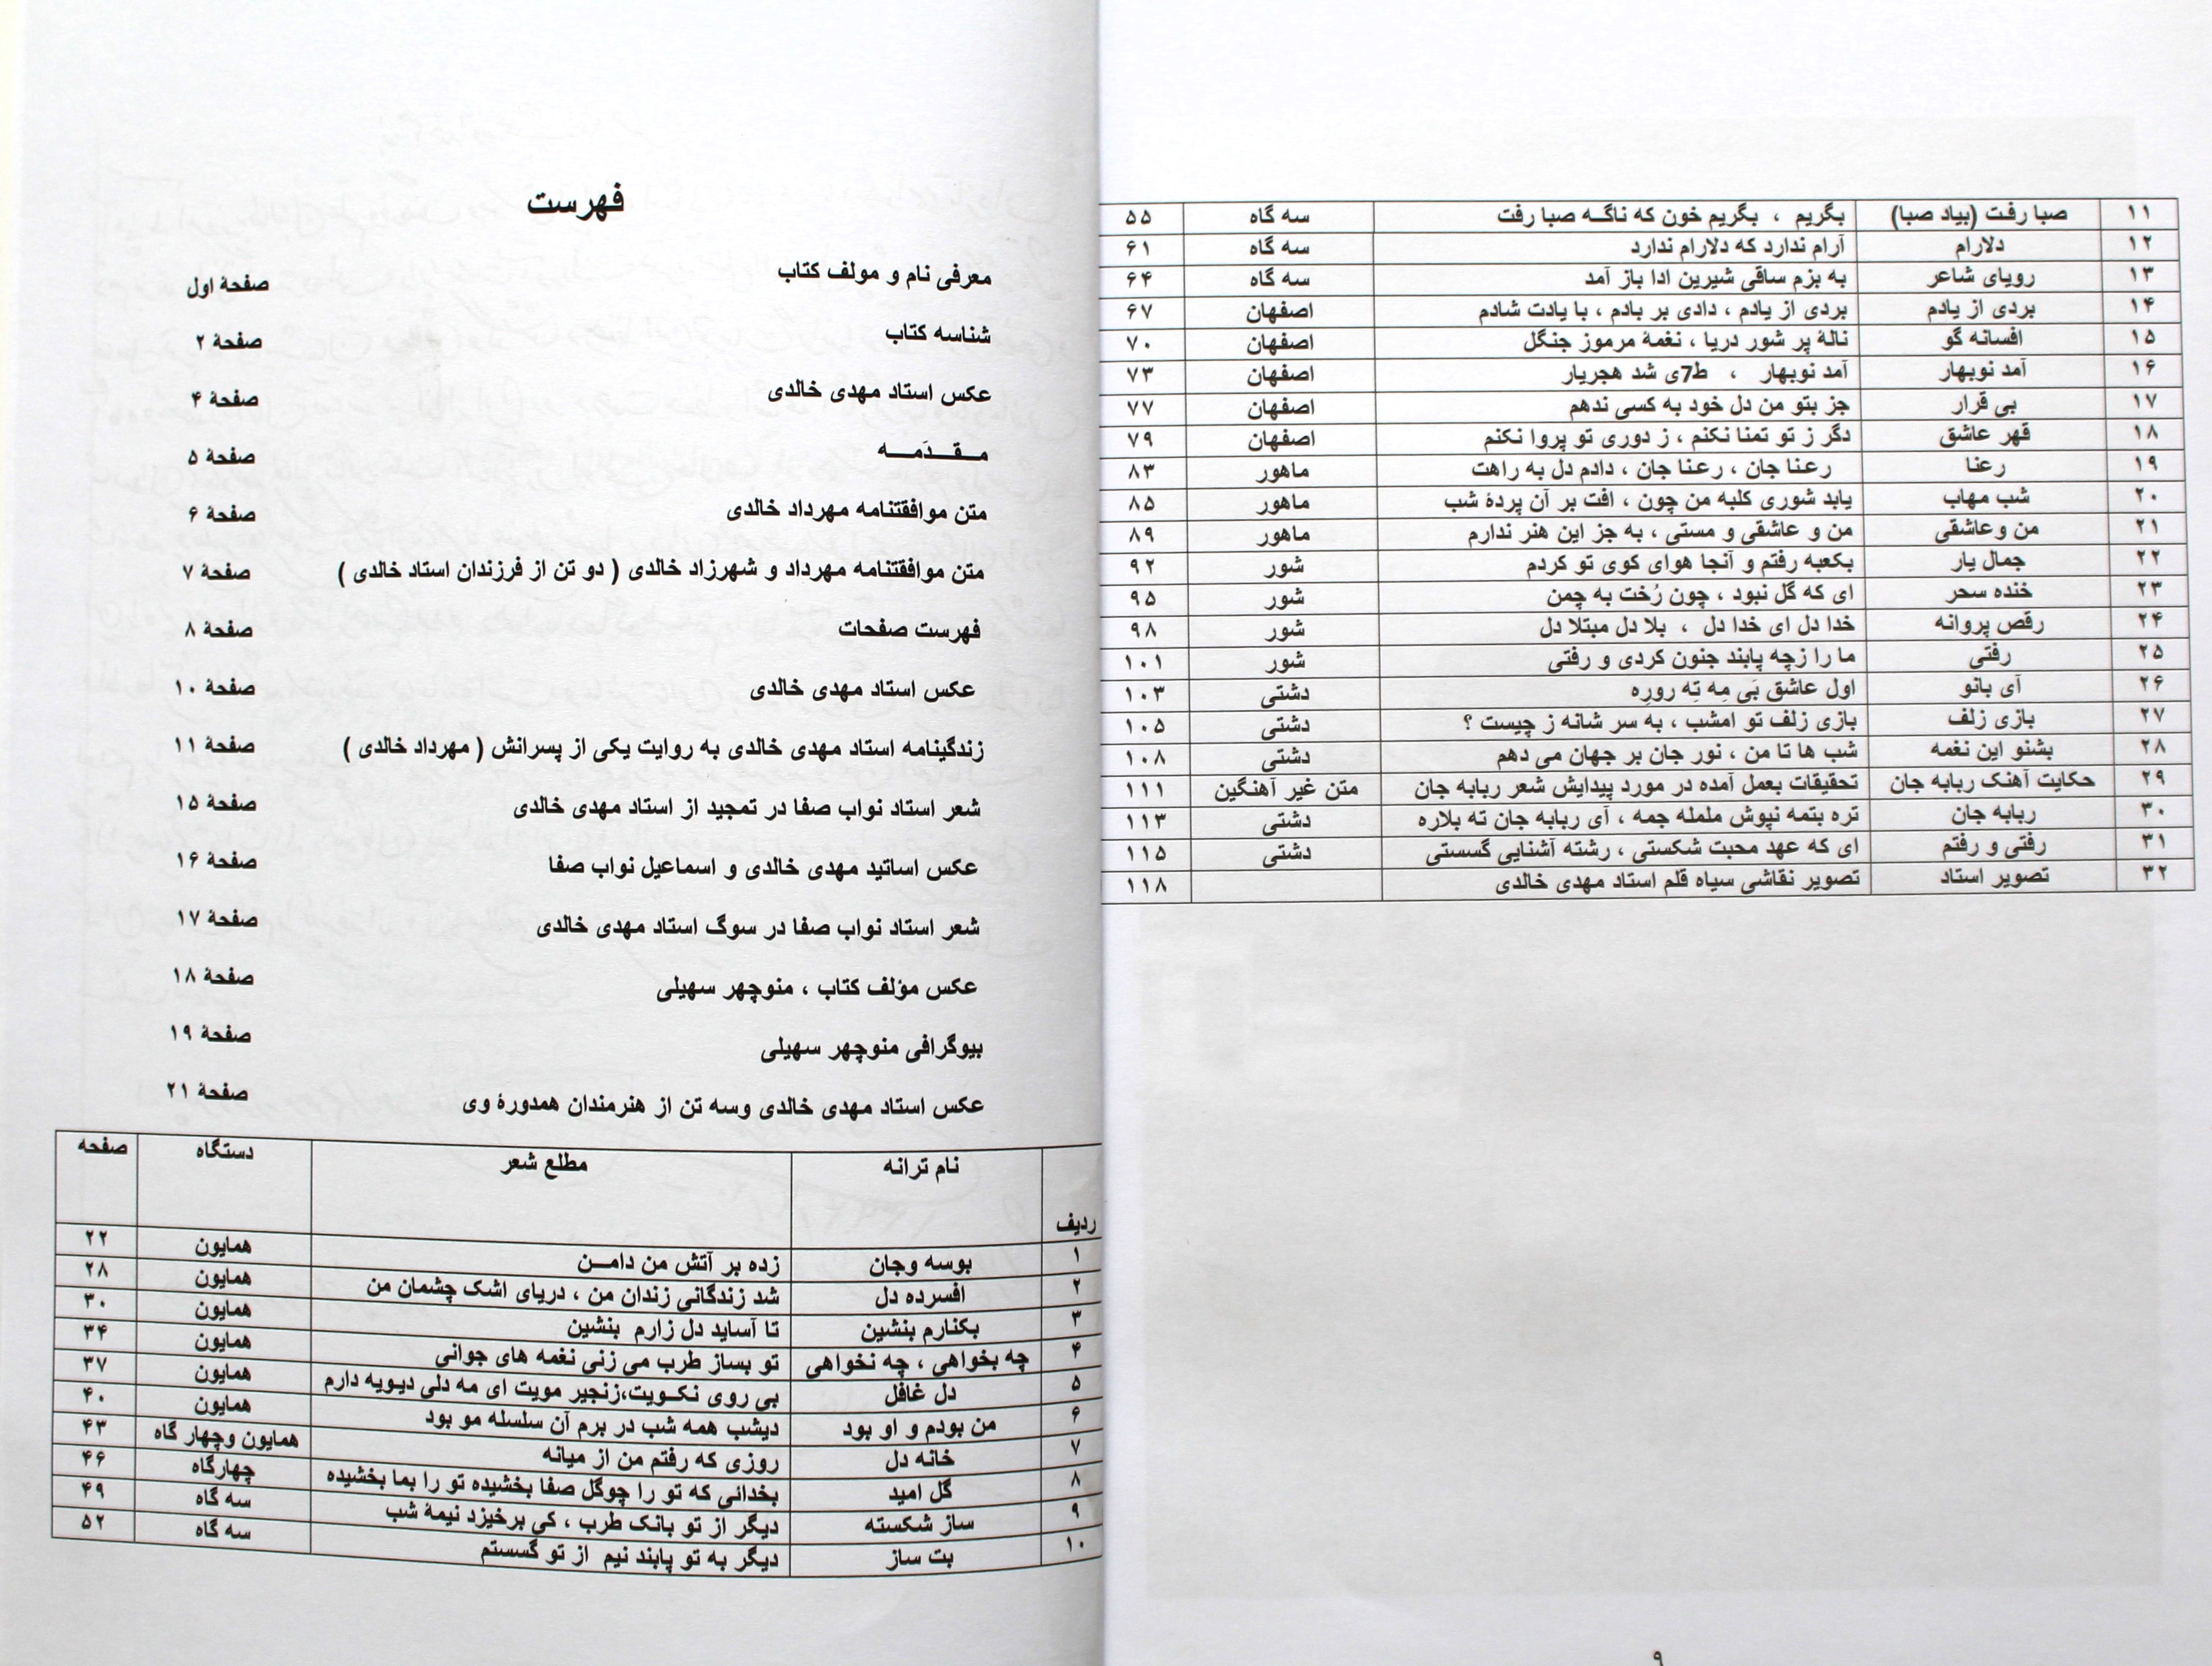 فهرست
معرفی نام و مولف کتاب صفحهٔ اول
شناسه کتاب صفحهٔ ۲
عکس استاد مهدی خالدی صفحهٔ ۴
مـــقـــدَمـــه صفحهٔ ۵
متن موافقتنامه مهرداد خالدی صفحهٔ ۶
متن موافقتنامه مهرداد و شهرزاد خالدی ( دو تن از فرزندان استاد خالدی ) صفحهٔ ۷
فهرست صفحات صفحهٔ ۸
عکس استاد مهدی خالدی صفحهٔ ۱۰
زندگینامه استاد مهدی خالدی به روایت یکی از پسرانش ( مهرداد خالدی ) صفحهٔ ۱۱
شعر استاد نواب صفا در تمجید از استاد مهدی خالدی صفحهٔ ۱۵
عکس اساتید مهدی خالدی و اسماعیل نواب صفا صفحهٔ ۱۶
شعر استاد نواب صفا در سوگ استاد مهدی خالدی صفحهٔ ۱۷
عکس مؤلف کتاب ، منوچهر سهیلی صفحهٔ ۱۸
بیوگرافی منوچهر سهیلی صفحهٔ ۱۹
عکس استاد مهدی خالدی وسه تن از هنرمندان همدورهٔ وی صفحهٔ ۲۱
ردیف نام ترانه مطلع شعر دستگاه صفحه
۱ بوسه وجان زده بر آتش من دامـــن همایون ۲۲
۲ افسرده دل شد زندگانی زندان من ، دریای اشک چشمان من همایون ۲۸
۳ بکنارم بنشین تا آساید دل زارم بنشین همایون ۳۰
۴ چه بخواهی ، چه نخواهی تو بساز طرب می زنی نغمه های جوانی همایون ۳۴
۵ دل غافل بی روی نکـویت،زنجیر مویت ای مه دلی دیـویه دارم همایون ۳۷
۶ من بودم و او بود دیشب همه شب در برم آن سلسله مو بود همایون ۴۰
۷ خانه دل روزی که رفتم من از میانه همایون وچهار گاه ۴۳
۸ گل امید بخدائی که تو را چوگل صفا بخشیده تو را بما بخشیده چهارگاه ۴۶
۹ ساز شکسته دیگر از تو بانک طرب ، کی برخیزد نیمهٔ شب سه گاه ۴۹
۱۰ بت ساز دیگر به تو پابند نیم از تو گسستم سه گاه ۵۲
۱۱ صبا رفت (بیاد صبا) بگریم ، بگریم خون که ناگـه صبا رفت سه گاه ۵۵
۱۲ دلارام آرام ندارد که دلارام ندارد سه گاه ۶۱
۱۳ رویای شاعر به بزم ساقی شیرین ادا باز آمد سه گاه ۶۴
۱۴ بردی از یادم بردی از یادم ، دادی بر بادم ، با یادت شادم اصفهان ۶۷
۱۵ افسانه گو نالهٔ پر شور دریا ، نغمهٔ مرموز جنگل اصفهان ۷۰
۱۶ آمد نوبهار آمد نوبهار ، ط7ی شد هجریار اصفهان ۷۳
۱۷ بی قرار جز بتو من دل خود به کسی ندهم اصفهان ۷۷
۱۸ قهر عاشق دگر ز تو تمنا نکنم ، ز دوری تو پروا نکنم اصفهان ۷۹
۱۹ رعنا رعنا جان ، رعنا جان ، دادم دل به راهت ماهور ۸۳
۲۰ شب مهاب یابد شوری کلبه من چون ، افت بر آن پردهٔ شب ماهور ۸۵
۲۱ من وعاشقی من و عاشقی و مستی ، به جز این هنر ندارم ماهور ۸۹
۲۲ جمال یار بکعبه رفتم و آنجا هوای کوی تو کردم شور ۹۲
۲۳ خنده سحر ای که گل نبود ، چون رُخت به چمن شور ۹۵
۲۴ رقص پروانه خدا دل ای خدا دل ، بلا دل مبتلا دل شور ۹۸
۲۵ رفتی ما را زچه پابند جنون کردی و رفتی شور ۱۰۱
۲۶ آی بانو اول عاشق بَی مِه تِه رورِه دشتی ۱۰۳
۲۷ بازی زلف بازی زلف تو امشب ، به سر شانه ز چیست ؟ دشتی ۱۰۵
۲۸ بشنو این نغمه شب ها تا من ، نور جان بر جهان می دهم دشتی ۱۰۸
۲۹ حکایت آهنک ربابه جان تحقیقات بعمل آمده در مورد پیدایش شعر ربابه جان متن غیر آهنگین ۱۱۱
۳۰ ربابه جان تره بتمه نپوش ململه جمه ، آی ربابه جان ته بلاره دشتی ۱۱۳
۳۱ رفتی و رفتم ای که عهد محبت شکستی ، رشته آشنایی گسستی دشتی ۱۱۵
۳۲ تصویر استاد تصویر نقاشی سیاه قلم استاد مهدی خالدی ۱۱۸
۹